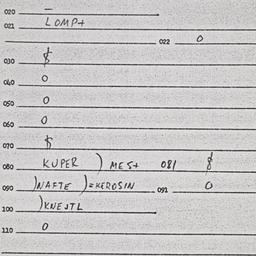 020 –
021 LOMP+
022 0
030 $
040 0
050 0
060 0
070 $
080 KUPER ) MES+ 081 $
090 )NAFTE )=KEROSIN 091 0
100 )KNESTL
110 0